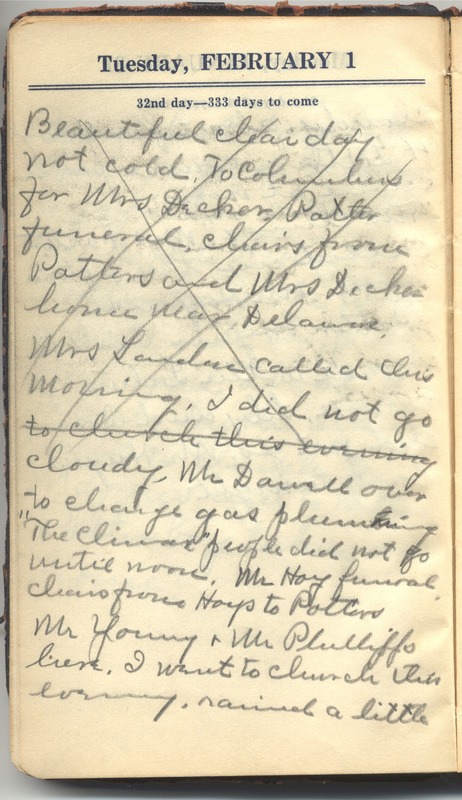 Tuesday, FEBRUARY 1
32nd day—333 days to come
Beautiful clear day
not cold. To Columbus
for Mrs Decker, Potter
funeral. chairs from
Potters and Mrs Decker
home near Delaware.
Mrs Landon called this
morning. I did not go
to church this evening
cloudy. Mr Darrell over
to change gas plumbing
"The Climax" people did not go
until noon. Mr Hoy funeral.
chairs from Hoys to Potters
Mr Young & Mr Phillipps
here. I went to church this
evening. rained a little